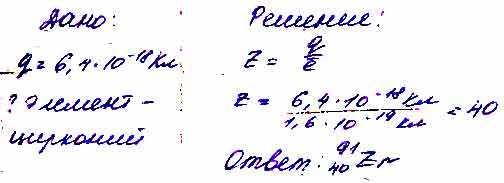 Дано:
q = 6,4·10⁻¹⁸ Кл
? элемент -
цирконий
Решение:
Z = q/e
Z = 6,4·10⁻¹⁸ Кл / 1,6·10⁻¹⁹ Кл = 40
Ответ: ⁹¹₄₀Zr